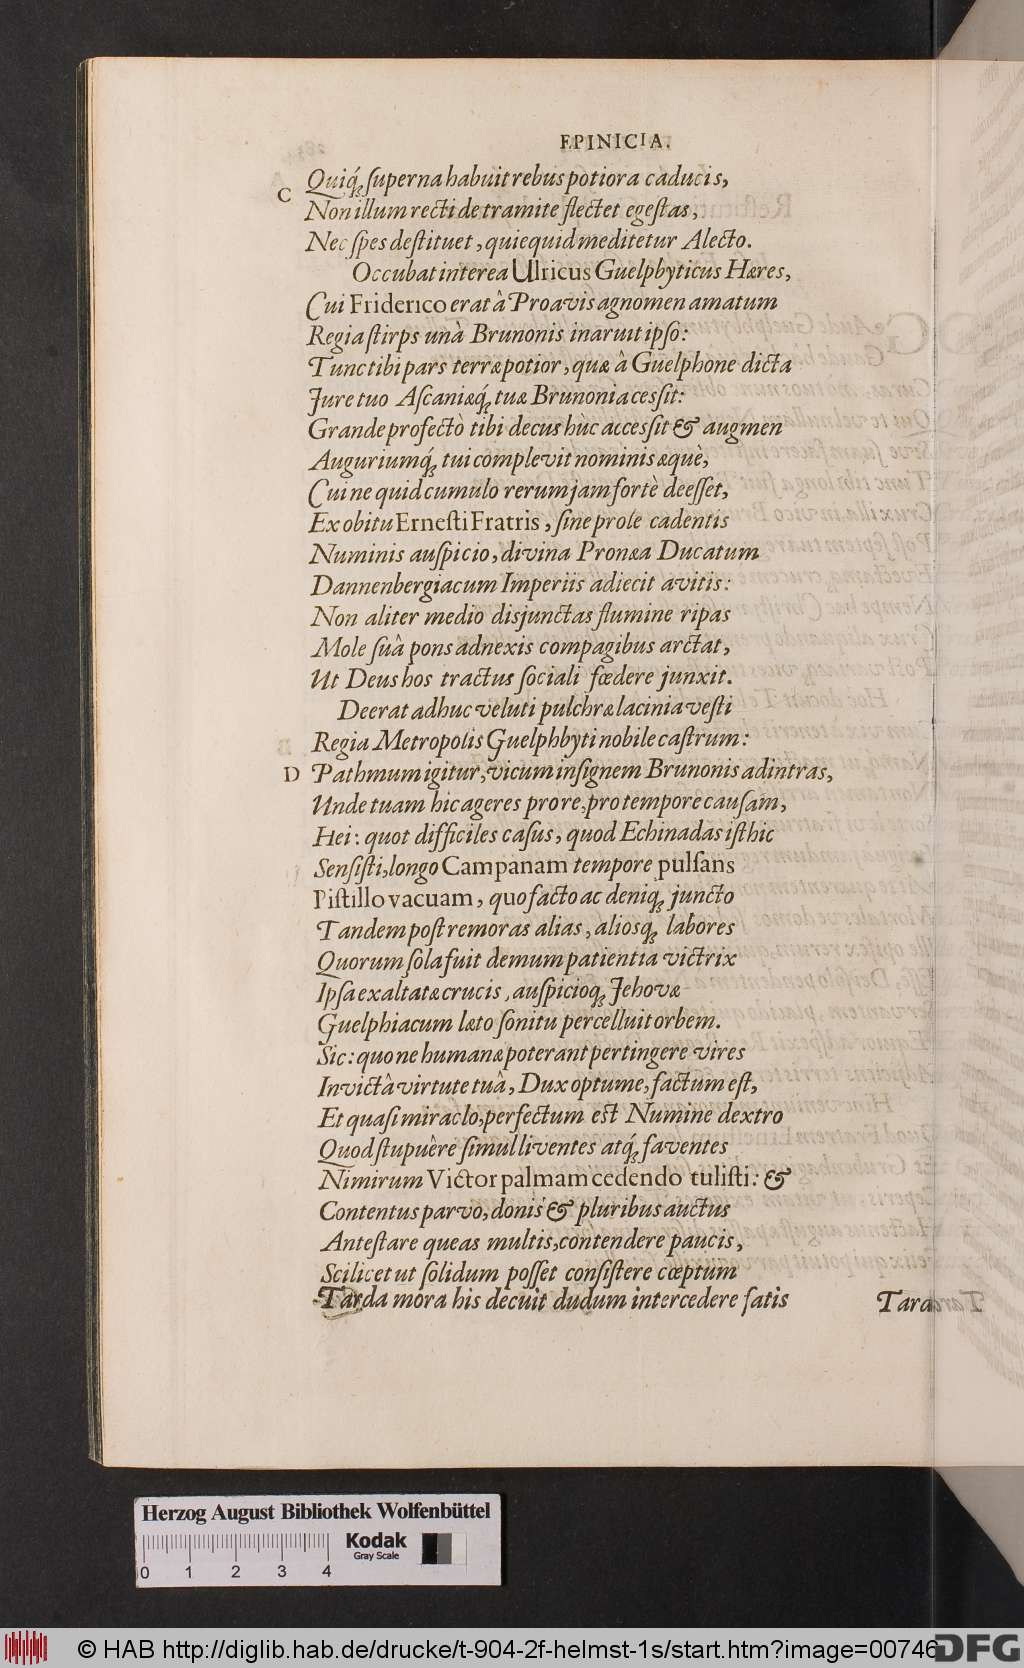 EPINICIA.
Quiq́ꝫ superna habuit rebus potiora caducis,
C
Non illum recti de tramite flectet egestas,
Nec spes destituet, quiequid meditetur Alecto.
Occubat interea Ulricus Guelpbyticus Hæres,
Cui Friderico erat â Proavis agnomen amatum
Regia stirps unà Brunonis inaruit ipso:
Tunc tibi pars terræ potior, quæ â Guelphone dicta
Jure tuo Ascaniæq́ꝫ tuæ Brunonia cessit:
Grande profectò tibi decus hùc accessit & augmen
Auguriumq́ꝫ tui complevit nominis æquè,
Cui ne quid cumulo rerum jam fortè deesset,
Ex obitu Ernesti Fratris, sine prole cadentis
Numinis auspicio, divina Pronæa Ducatum
Dannenbergiacum Imperiis adiecit avitis:
Non aliter medio disjunctas flumine ripas
Mole suâ pons adnexis compagibus arctat,
Ut Deus hos tractus sociali fœdere junxit.
Deerat adhuc veluti pulchræ lacinia vesti
Regia Metropolis Guelphbyti nobile castrum:
D Pathmum igitur, vicum insignem Brunonis ad intras,
Unde tuam hic ageres pro re, pro tempore causam,
Hei: quot difficiles casus, quod Echinadas isthic
Sensisti, longo Campanam tempore pulsans
Pistillo vacuam, quo facto ac deniqꝫ juncto
Tandem post remoras alias, aliosqꝫ labores
Quorum sola fuit demum patientia victrix
Ipsa exaltatæ crucis, auspicioqꝫ Jehovæ
Guelphiacum læto sonitu percelluit orbem.
Sic: quo ne humanæ poterant pertingere vires
Invictâ virtute tuâ, Dux optume, factum est,
Et quasi miraclo, perfectum est Numine dextro
Quod stupuêre simul liventes atq́ꝫ faventes
Nimirum Victor palmam cedendo tulisti: &
Contentus parvo, donis & pluribus auctus
Antestare queas multis, contendere paucis,
Scilicet ut solidum posset consistere cœptum
Tarda mora his decuit dudum intercedere fatis
Herzog August Bibliothek Wolfenbüttel
Kodak
Gray Scale
0 1 2 3 4
© HAB http://diglib.hab.de/drucke/t-904-2f-helmst-1s/start.htm?image=00746
DFG